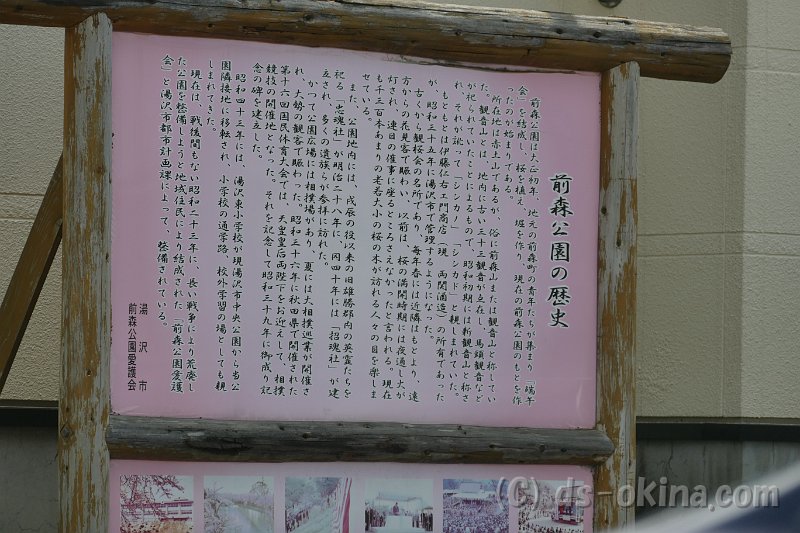 前森公園の歴史
前森公園は大正初年、地元の前森町の青年たちが集まり「端午
会」を結成し、桜を植え、堀を作り、現在の前森公園のもとを作
ったのが始まりである。
所在地は赤土山であるが、俗に前森山または観音山と称してい
た。観音山とは、地内に古い三十三観音が点在し、馬頭観音など
が祀られていたことによるもので、昭和初期には新観音山と称さ
れ、それが訛って「シンカノン」「シンカド」と親しまれていた。
もともとは伊藤仁右エ門商店（現 両関酒造）の所有であった
が、昭和三十五年に湯沢市で管理するようになった。
古くから観桜会の名所であり、毎年春には近隣はもとより、遠
方からの花見客で賑わい、以前は、桜の満開時期には夜通し火が
灯され、連日の催事に座るところさえなかったと言われる。現在
も千三百本あまりの老若大小の桜の木が訪れる人々の目を楽しま
せている。
また、公園地内には、戊辰の役以来の旧雄勝郡内の英霊たちを
祀る「忠魂社」が明治二十八年に、同四十年には「招魂社」が建
立され、多くの遺族らが参拝に訪れた。
かつて公園広場には相撲場があり、夏には大相撲巡業が開催さ
れ、大勢の観客で賑わった。昭和三十六年に秋田県で開催された
第十六回国民体育大会では、天皇皇后両陛下をお迎えして、相撲
競技の開催地となった。それを記念して昭和三十九年に御成り記
念の碑を建立した。
昭和四十三年には、湯沢東小学校が現湯沢市中央公園から当公
園隣接地に移転され、小学校の通学路、校外学習の場としても親
しまれてきた。
現在は、戦後間もない昭和二十三年に、長い戦争により荒廃し
た公園を整備しようと地域住民により結成された「前森公園愛護
会」と湯沢市都市計画課によって、整備されている。
湯沢市
前森公園愛護会
(C) ds-okina.com